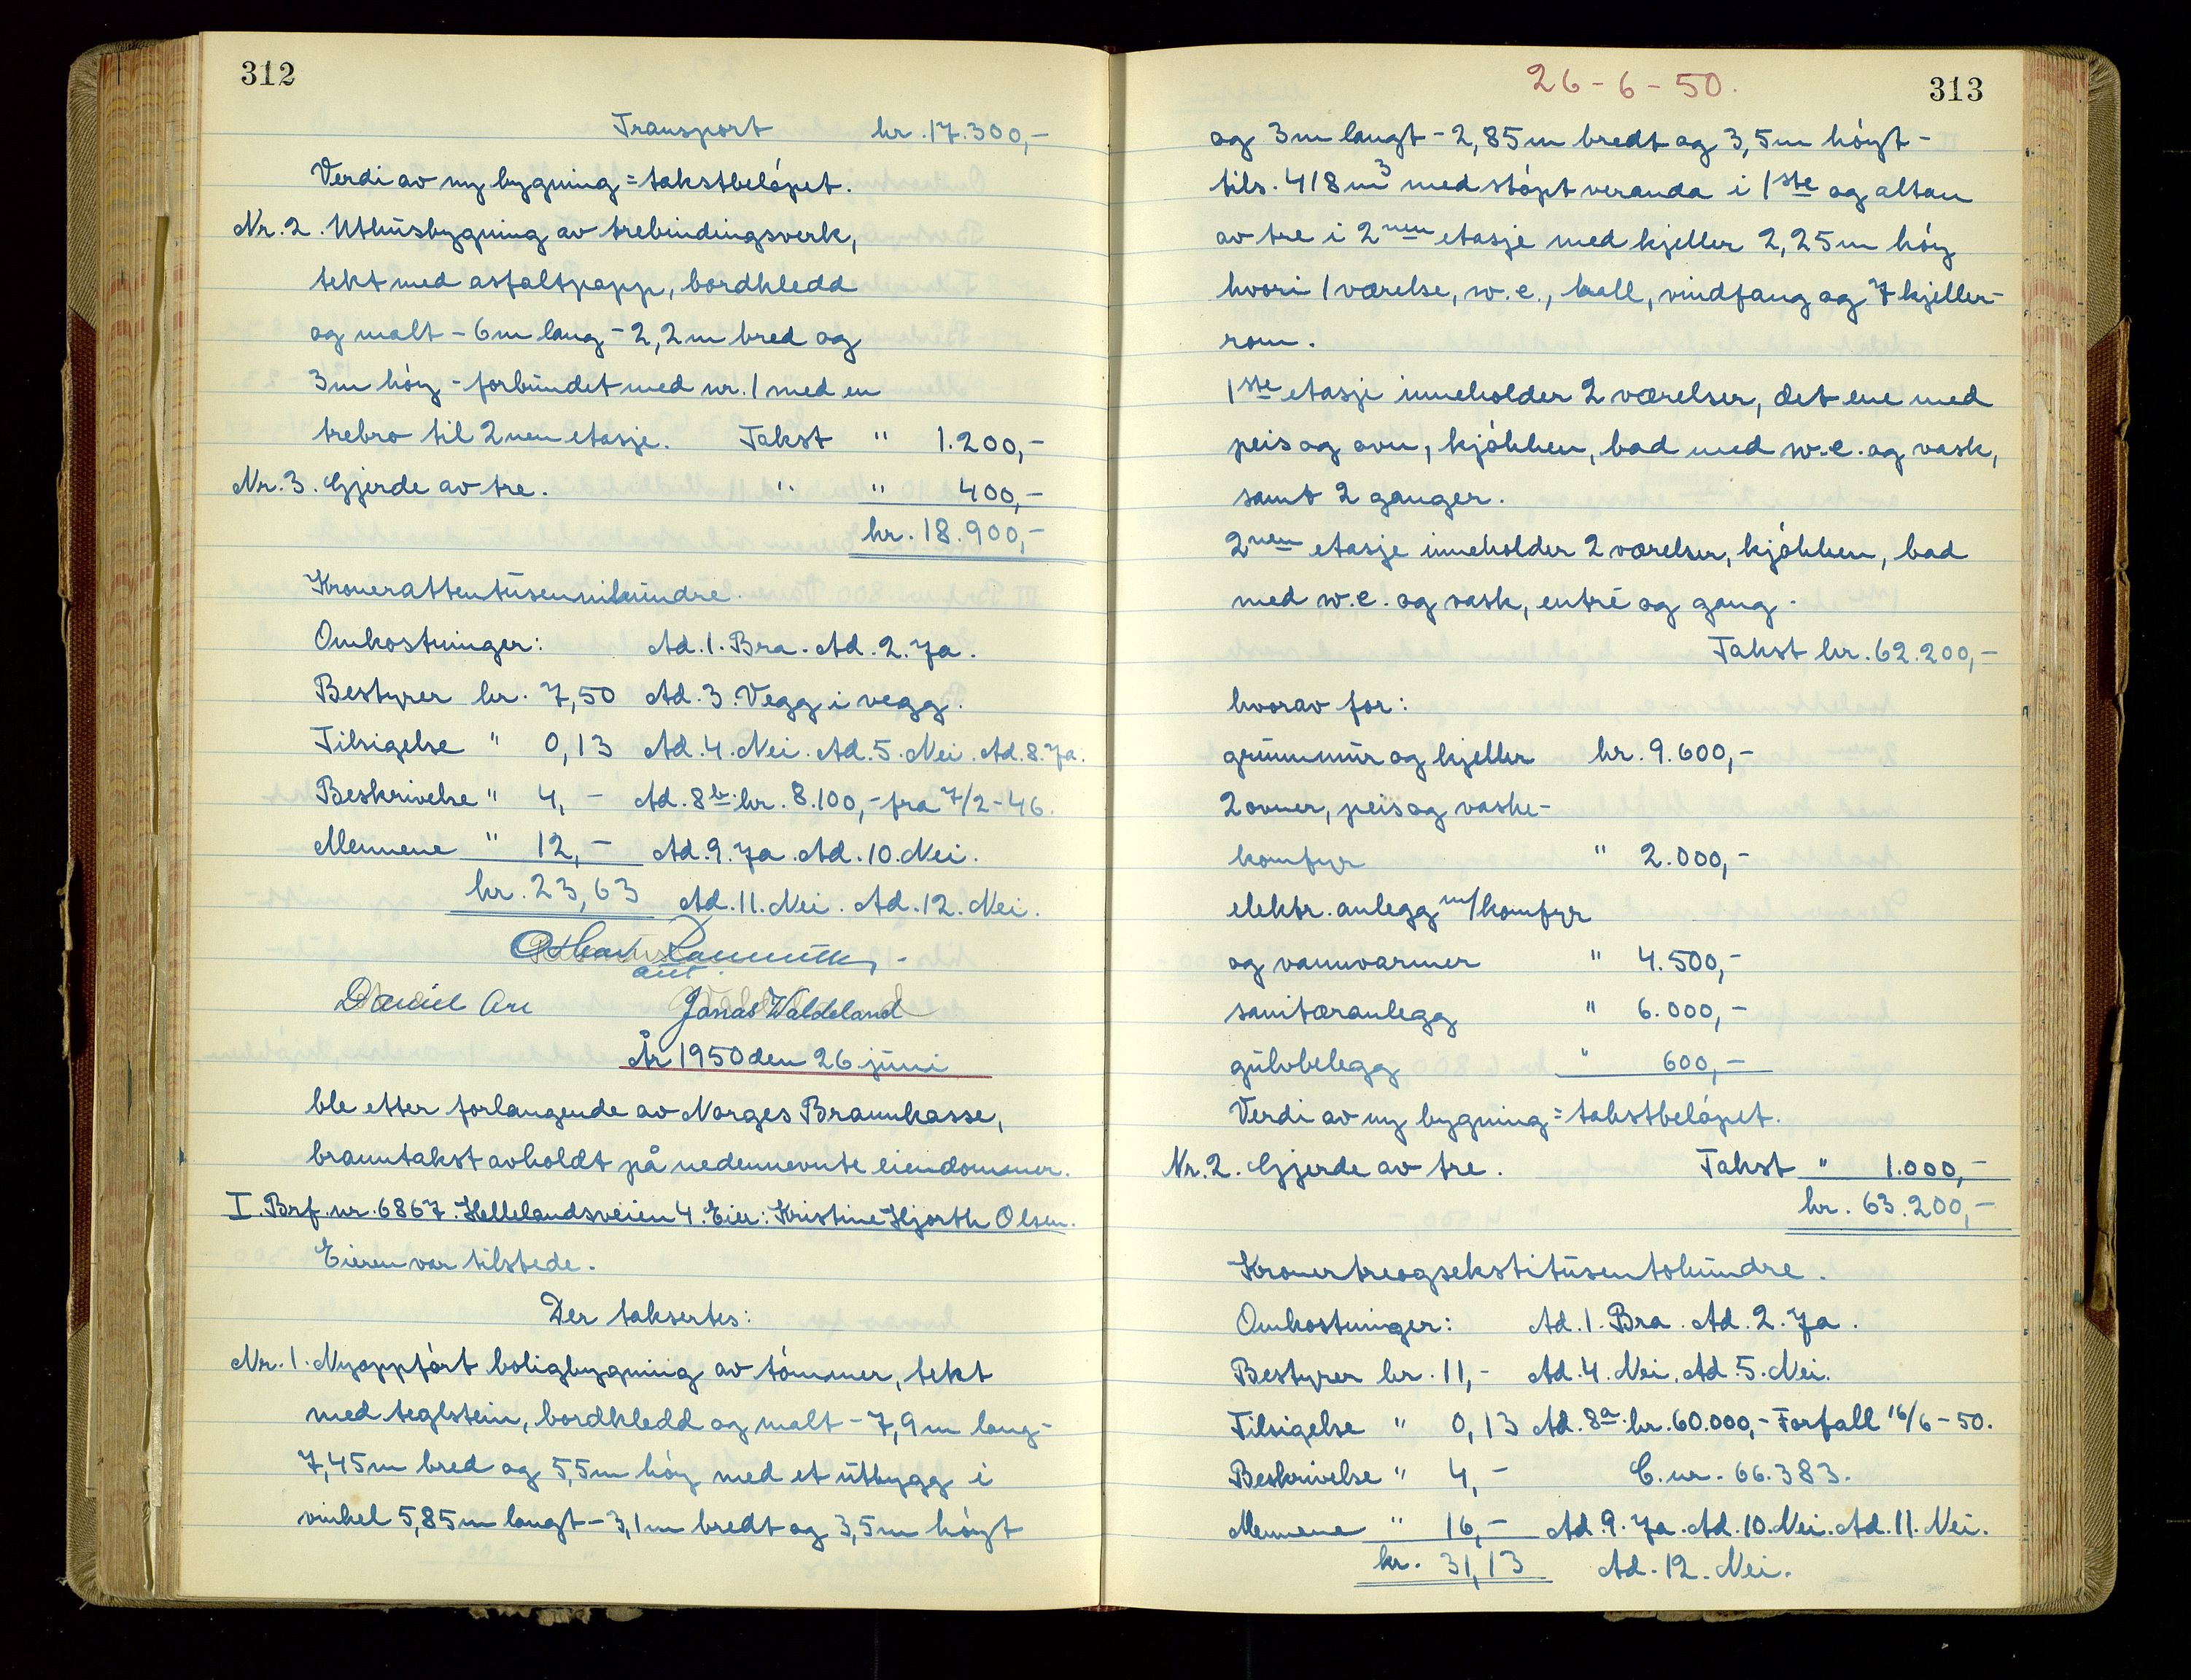 312
Transport kr. 17.300,-
Verdi av ny bygning = takstbeløpet.
Nr. 2. Uthusbygning av trebindingsverk,
tekt med asfaltpapp, bordkledd
og malt - 6m lang - 2,2m bred og
3m høy - forbundet med nr. 1 med en
trebro til 2nen etasje. Takst " 1.200,-
Nr. 3. Gjerde av tre. " " 400,-
kr. 18.900,-
Kroner attentusennihundre.
Omkostninger: Ad. 1. Bra. Ad. 2. Ja.
Bestyrer kr. 7,50 Ad. 3. Vegg i vegg.
Tilsigelse " 0,13 Ad. 4. Nei. Ad. 5. Nei. Ad. 8. Ja.
Beskrivelse " 4,- Ad. 8b. kr. 8.100,- fra 7/2-46.
Mennene " 12,- Ad. 9. Ja. Ad. 10. Nei.
kr. 23,63 Ad. 11. Nei. Ad. 12. Nei.
Daniel Jonas Waldeland
År 1950 den 26 juni
ble etter forlangende av Norges Brannkasse,
branntakst avholdt på nedennevnte eiendommer.
I. Brf. nr. 6867. Hellelandsveien 4. Eier: Kristine Hjorth Olsen.
Eieren var tilstede.
Der taksertes:
Nr. 1. Nyoppført boligbygning av tømmer, tekt
med teglstein, bordkledd og malt - 7,9m lang -
7,45m bred og 5,5m høy med et utbygg i
vinkel 5,85m langt - 3,1m bredt og 3,5m høyt
26-6-50. 313
og 3m langt - 2,85m bredt og 3,5m høyt -
tils. 418m3 med støpt veranda i 1ste og altan
av tre i 2nen etasje med kjeller 2,25m høy
hvori 1 værelse, w.c., hall, vindfang og 7 kjeller-
rom.
1ste etasje inneholder 2 værelser, det ene med
peis og ovn, kjøkken, bad med w.c. og vask,
samt 2 ganger.
2nen etasje inneholder 2 værelser, kjøkken, bad
med w.c. og vask, entré og gang.
Takst kr. 62.200,-
hvorav for:
grunnmur og kjeller kr. 9.600,-
2 ovner, peis og vaske-
komfyr " 2.000,-
elektr. anlegg m/komfyr
og vannvarmer " 4.500,-
sanitæranlegg " 6.000,-
gulvbelegg " 600,-
Verdi av ny bygning = takstbeløpet.
Nr. 2. Gjerde av tre. Takst " 1.000,-
kr. 63.200,-
Kroner treogsekstitusentohundre.
Omkostninger: Ad. 1. Bra. Ad. 2. Ja.
Bestyrer kr. 11,- Ad. 4. Nei. Ad. 5. Nei.
Tilsigelse " 0,13 Ad. 8a. kr. 60.000,- Forfall 16/6-50.
Beskrivelse " 4,- C. nr. 66.383.
Mennene " 16,- Ad. 9. Ja. Ad. 10. Nei. Ad. 11. Nei.
kr. 31,13 Ad. 12. Nei.